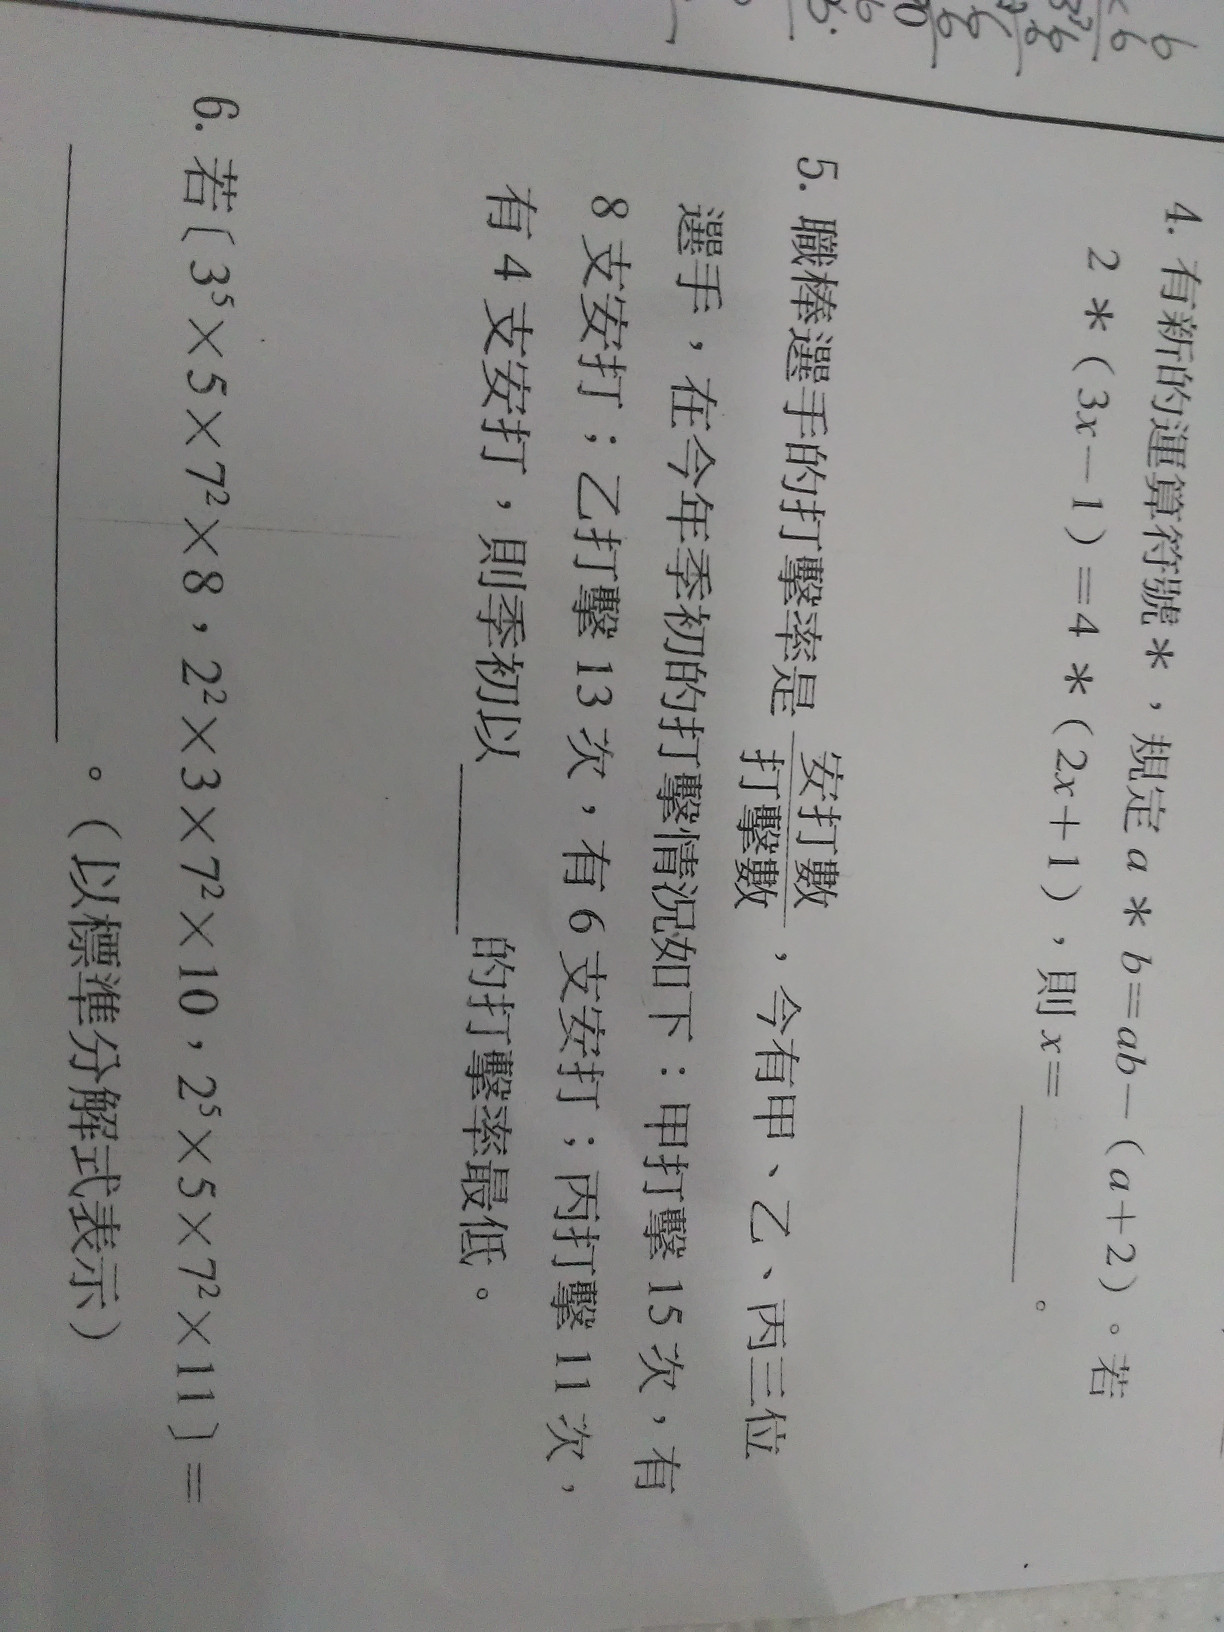 4. 有新的運算符號＊，規定 a＊b＝ab－(a＋2)。若
2＊(3x－1)＝4＊(2x＋1)，則 x＝________。
5. 職棒選手的打擊率是 安打數/打擊數，今有甲、乙、丙三位
選手，在今年季初的打擊情況如下：甲打擊 15 次，有
8 支安打；乙打擊 13 次，有 6 支安打；丙打擊 11 次，
有 4 支安打，則季初以________的打擊率最低。
6. 若〔3⁵×5×7²×8，2²×3×7²×10，2⁵×5×7²×11〕＝
________________。(以標準分解式表示)